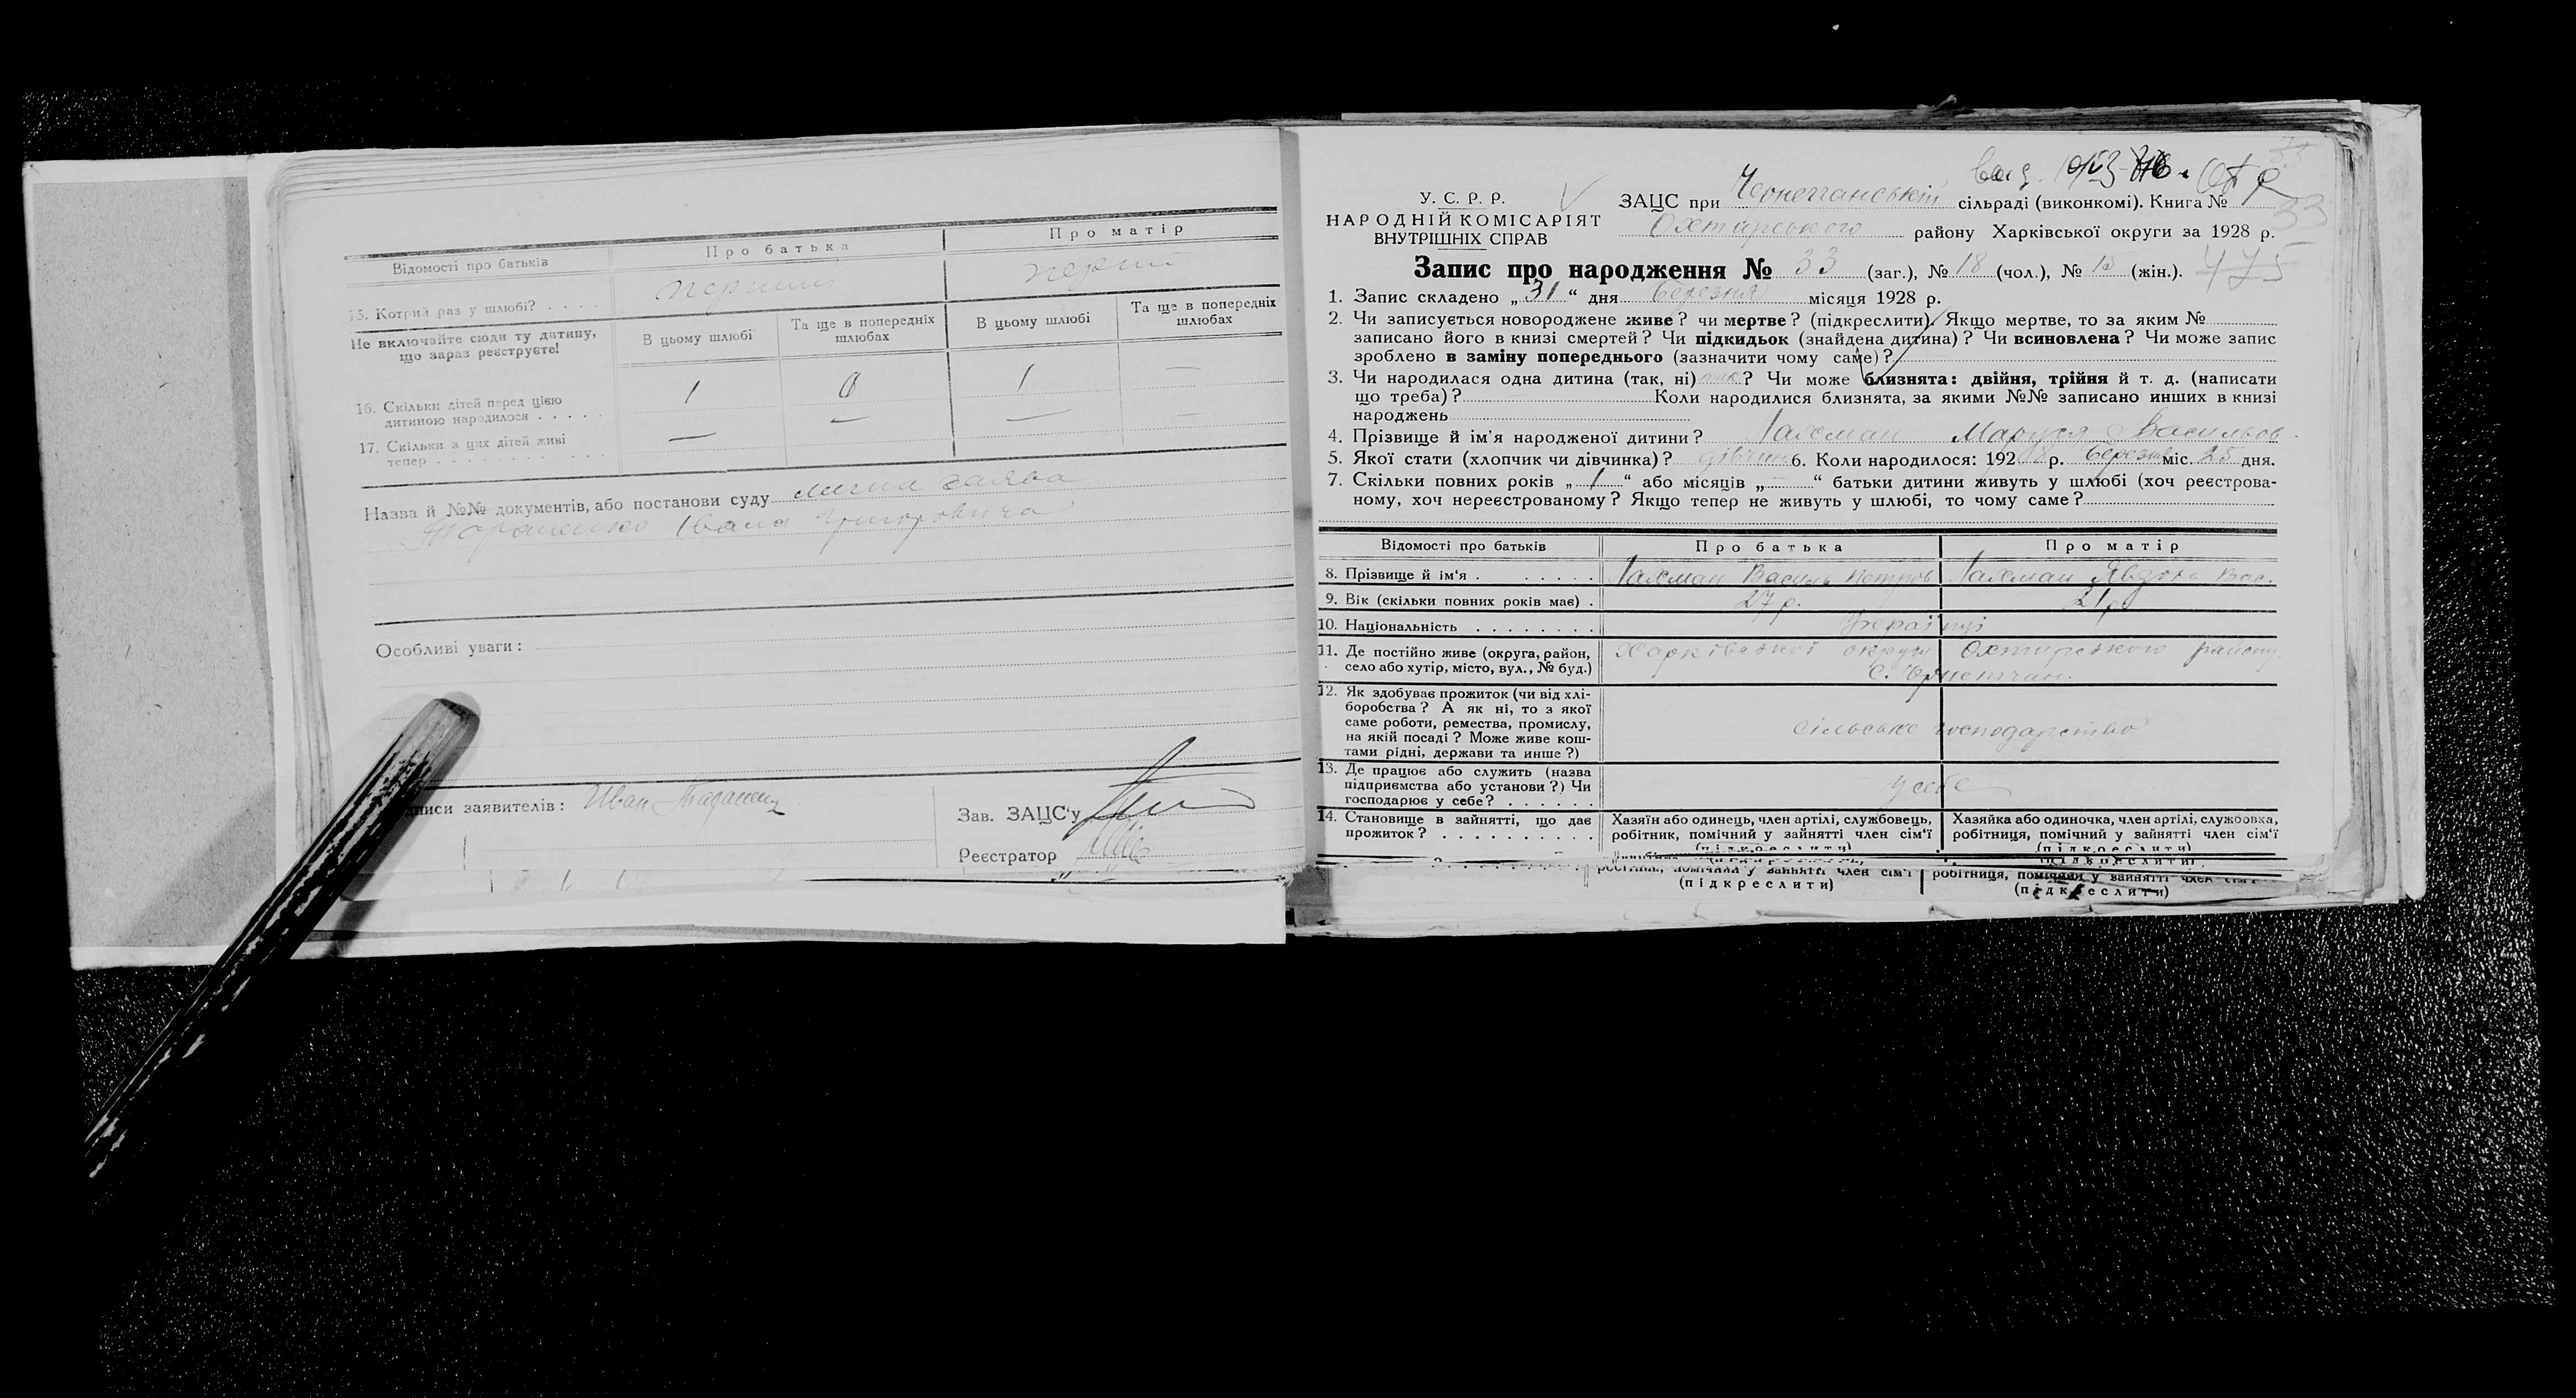 Відомості про батьків
Про батька
Про матір
15. Котрий раз у шлюбі? . . . .
перший
Не включайте сюди ту дитину, що зараз реєструєте!
В цьому шлюбі
Та ще в попередніх шлюбах
В цьому шлюбі
Та ще в попередніх шлюбах
16. Скільки дітей перед цією дитиною народилося . . . . .
1
0
1
—
17. Скільки з цих дітей живі тепер . . . . . . . . . . .
—
—
—
—
Назва й №№ документів, або постанови суду
Івана Григоровича
Особливі уваги :
писи заявителів :
Зав. ЗАЦС'у
Реєстратор
У. С. Р. Р.
НАРОДНІЙ КОМІСАРІЯТ
ВНУТРІШНІХ СПРАВ
ЗАЦС при сільраді (виконкомі). Книга № 1
Охтирського району Харківської округи за 1928 р.
33
475
Запис про народження № 33 (заг.), № 18 (чол.), № 15 (жін.).
1. Запис складено „ 31 “ дня березня місяця 1928 р.
2. Чи записується новороджене живе? чи мертве? (підкреслити). Якщо мертве, то за яким №
записано його в книзі смертей? Чи підкидьок (знайдена дитина)? Чи всиновлена? Чи може запис
зроблено в заміну попереднього (зазначити чому саме)?
3. Чи народилася одна дитина (так, ні) так ? Чи може близнята: двійня, трійня й т. д. (написати
що треба)? Коли народилися близнята, за якими №№ записано инших в книзі
народжень
4. Прізвище й ім'я народженої дитини? Лахман Маруся Васильов
5. Якої стати (хлопчик чи дівчинка)? дівчин 6. Коли народилося: 192 8 р. березня міс. 25 дня.
7. Скільки повних років „ 1 “ або місяців „ — “ батьки дитини живуть у шлюбі (хоч реєстрова-
ному, хоч нереєстрованому? Якщо тепер не живуть у шлюбі, то чому саме?
Відомості про батьків
Про батька
Про матір
8. Прізвище й ім'я . . . . . .
Лахман Василь Петров
Лахман Явдоха Вас.
9. Вік (скільки повних років має) .
27 р.
21 р
10. Національність . . . . . . . .
Українці
11. Де постійно живе (округа, район,
село або хутір, місто, вул., № буд.)
Харківської округи Охтирського району
12. Як здобуває прожиток (чи від хлі-
боробства? А як ні, то з якої
саме роботи, ремества, промислу,
на якій посаді? Може живе кош-
тами рідні, держави та инше?)
сільське господарство
13. Де працює або служить (назва
підприємства або установи?) Чи
господарює у себе? . . . . . .
у себе
14. Становище в зайнятті, що дає
прожиток? . . . . . . . . . .
Хазяїн або одинець, член артілі, службовець,
робітник, помічний у зайнятті член сім'ї
(підкреслити)
Хазяйка або одиночка, член артілі, службовка,
робітниця, помічний у зайнятті член сім'ї
(підкреслити)
(підкреслити)
робітниця, помічний у зайнятті член сім'ї
(підкреслити)